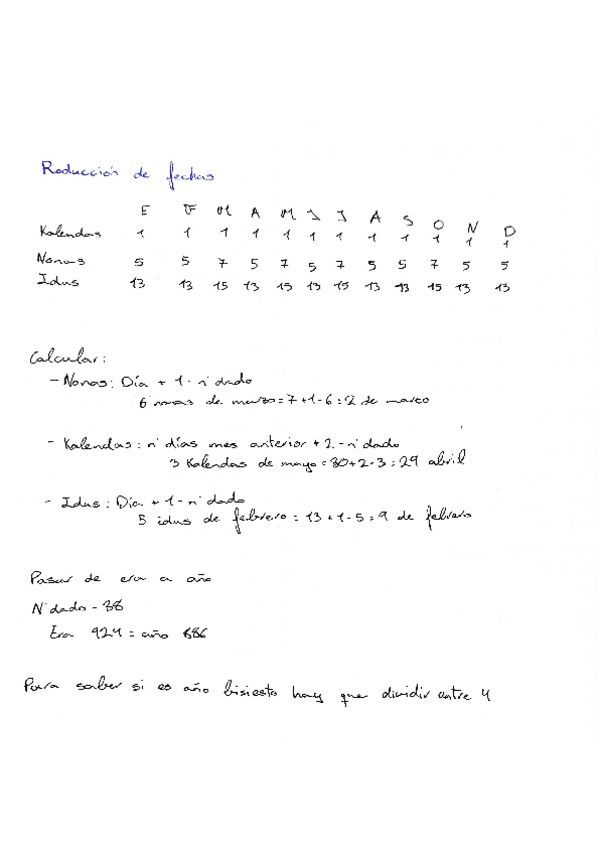 Reducción de fechas
E F M A M J J A S O N D
Kalendas 1 1 1 1 1 1 1 1 1 1 1 1
Nonas 5 5 7 5 7 5 7 5 5 7 5 5
Idus 13 13 15 13 15 13 15 13 13 15 13 13
Calcular:
- Nonas: Día + 1 - nº dado
6 nonas de marzo = 7 + 1 - 6 = 2 de marzo
- Kalendas: nº días mes anterior + 2 - nº dado
3 Kalendas de mayo = 30 + 2 - 3 = 29 abril
- Idus: Día + 1 - nº dado
5 idus de febrero = 13 + 1 - 5 = 9 de febrero
Pasar de era a año
Nº dado - 38
Era 924 = año 886
Para saber si es año bisiesto hay que dividir entre 4